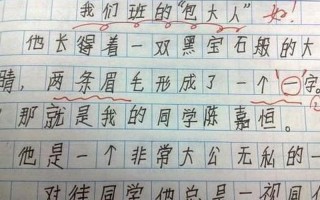 我们班的“包大人” 好!
他长得着一双黑宝石般的大
睛，两条眉毛形成了一个“一”字。
那就是我的同学陈嘉恒。
他是一个非常大公无私的一
对待同学他总是一视同仁